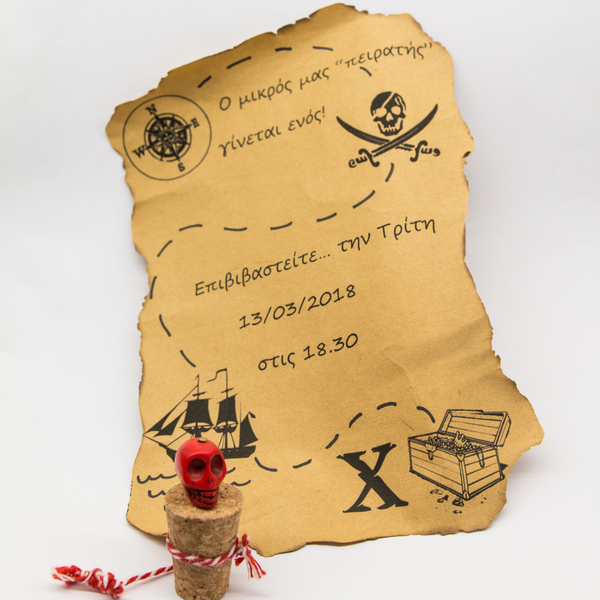 Ο μικρός μας “πειρατής”
γίνεται ενός!
N
E
W
S
Επιβιβαστείτε... την Τρίτη
13/03/2018
στις 18.30
X